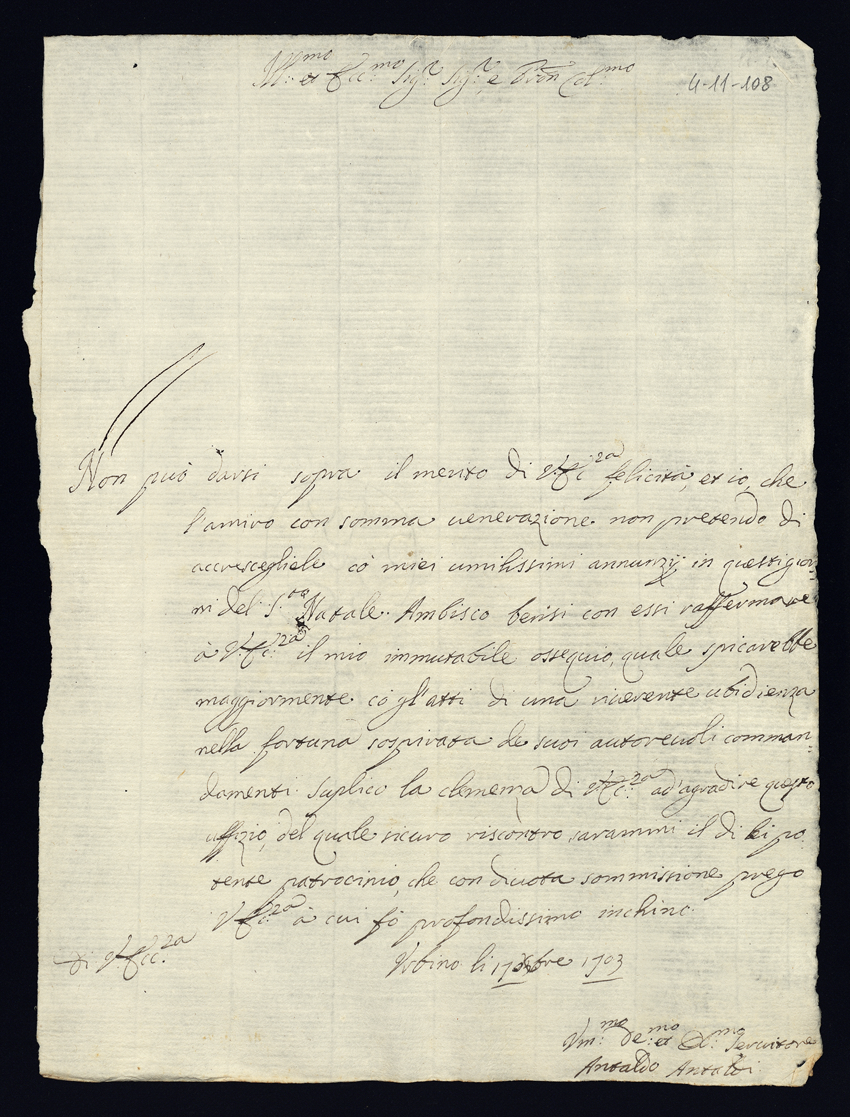 Ill.mo et Ecc.mo Sig.r Sig.r e Pron Col.mo
4-11-108
Non può darsi sopra il merito di V. Ecc.za felicità, et io, che
l'amiro con somma uenerazione non pretendo di
accrescegliele co' miei umilissimi annunzij in questi gior
ni del S.to Natale. Ambisco bensi con essi raffermare
à V. Ecc.za il mio immutabile ossequio, quale spicarebbe
maggiormente co' gl'atti di una riuerente ubidienza
nella fortuna sospirata de suoi autoreuoli comman
damenti. Suplico la clemenza di V. Ecc.za ad'agradire questo
uffizio, del quale sicuro riscontro sarammi il di lei po
tente patrocinio, che con diuota sommissione prego
V. Ecc.za à cui fò profondissimo inchino.
Di V. Ecc.za
Urbino li Xbre 1703
Um.mo De.mo et Ob.mo Seruitore
Antaldo Antaldi